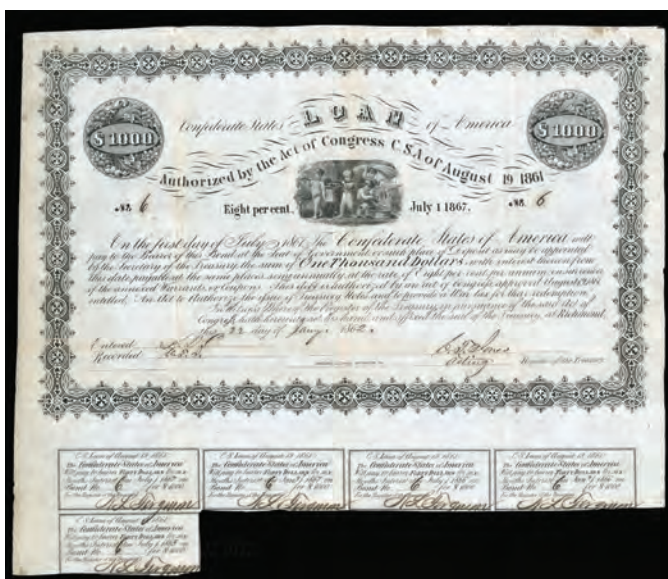 LOAN
Confederate States of America
$1000 $1000
Authorized by the Act of Congress C.S.A. of August 19 1861
No. 6 Eight per cent. July 1 1867. No. 6
On the first day of July 1867 The Confederate States of America will
pay to the Bearer of this Bond at the Seat of Government or such place of Deposit as may be appointed
by the Secretary of the Treasury, the sum of One Thousand Dollars with interest thereon from
this date payable at the same places semi annually at the rate of Eight per cent per annum on surrender
of the annexed Warrants or Coupons. This debt is authorized by an act of congress approved August 19 1861
entitled An Act to Authorize the issue of Treasury Notes and to provide a War tax for their redemption
In Witness Whereof the Register of the Treasury in pursuance of the said Act of
Congress hath hereunto set his hand and affixed the seal of the Treasury, at Richmond,
this 22 day of Jany 1862.
Entered
Recorded Acting Register of the Treasury
C.S. Loan of August 19 1861
The Confederate States of America
Will pay to bearer Forty Dollars for six
Months Interest due July 1
Bond No. 6 for $1000
C.S. Loan of August 19 1861
The Confederate States of America
Will pay to bearer Forty Dollars for six
Months Interest due Jany 1
Bond No. 6 for $1000
C.S. Loan of August 19 1861
The Confederate States of America
Will pay to bearer Forty Dollars for six
Months Interest due July 1
Bond No. 6 for $1000
C.S. Loan of August 19 1861
The Confederate States of America
Will pay to bearer Forty Dollars for six
Months Interest due Jany 1
Bond No. 6 for $1000
C.S. Loan of August 19 1861
The Confederate States of America
Will pay to bearer Forty Dollars for six
Months Interest due July 1
Bond No. 6 for $1000